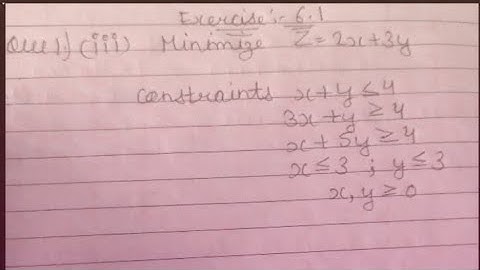 Exercise:- 6.1
Que 1) (iii) Minimize Z = 2x+3y
Constraints x+y ≤ 4
3x+y ≥ 4
x+5y ≥ 4
x ≤ 3 ; y ≤ 3
x, y ≥ 0